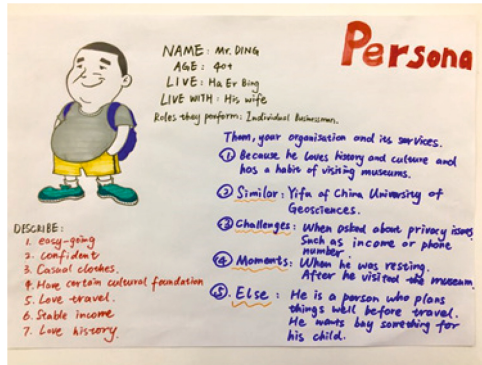 Persona
NAME: Mr. DING
AGE: 40+
LIVE: Ha Er Bing
LIVE WITH: His wife
Roles they perform: Individual Businessman.
Them, your organisation and its services.
① Because he loves history and culture and
has a habit of visiting museums.
② Similar: Yifu of China University of
Geosciences.
③ Challenges: When asked about privacy issues
Such as income or phone
number.
④ Moments: When he was resting.
After he visited the museum.
⑤. Else: He is a person who plans
things well before travel.
He wants buy something for
his child.
DESCRIBE:
1. easy-going
2. confident
3. Casual clothes.
4. Have certain cultural foundation
5. Love travel.
6. Stable income
7. Love history.